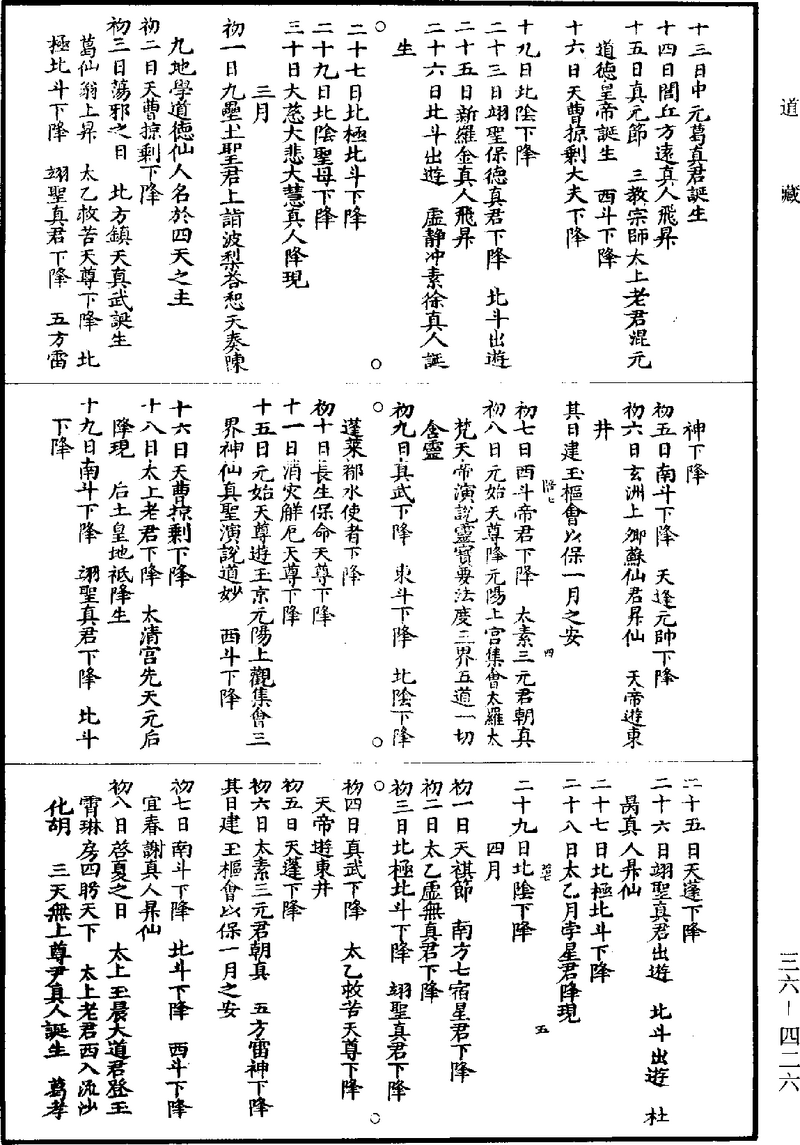 道藏
十三日中元葛真君誕生
十四日閭丘方遠真人飛昇
十五日真元節　三教宗師太上老君混元
道德皇帝誕生　西斗下降
十六日天曹掠剩大夫下降
十九日北陰下降
二十三日翊聖保德真君下降　北斗出遊
二十五日新羅金真人飛昇
二十六日北斗出遊　虛静冲素徐真人誕
生
二十七日北極北斗下降
二十九日北陰聖母下降
三十日大慈大悲大慧真人降現
三月
初一日九壘土聖君上詣波梨荅恕天奏陳
九地學道德仙人名於四天之主
初二日天曹掠剩下降
初三日蕩邪之日　北方鎮天真武誕生
葛仙翁上昇　太乙救苦天尊下降　北
極北斗下降　翊聖真君下降　五方雷
神下降
初五日南斗下降　天逢元帥下降
初六日玄洲上卿蘇仙君昇仙　天帝遊東
井
其日建玉樞會以保一月之安
初七日西斗帝君下降　太素三元君朝真
四
初八日元始天尊降元陽上宮集會太羅太
梵天帝演說靈寶要法度三界五道一切
含靈
初九日真武下降　東斗下降　北陰下降
蓬萊都水使者下降
初十日長生保命天尊下降
十一日消灾解厄天尊下降
十五日元始天尊遊玉京元陽上觀集會三
界神仙真聖演說道妙　西斗下降
十六日天曹掠剩下降
十八日太上老君下降　太清宮先天元后
降現　后土皇地祇降生
十九日南斗下降　翊聖真君下降　北斗
下降
二十五日天蓬下降
二十六日翊聖真君出遊　北斗出遊　杜
昺真人昇仙
二十七日北極北斗下降
二十八日太乙月孛星君降現
五
二十九日北陰下降
四月
初一日天祺節　南方七宿星君下降
初二日太乙虛無真君下降
初三日北極北斗下降　翊聖真君下降
初四日真武下降　太乙救苦天尊下降
天帝遊東井
初五日天蓬下降
初六日太素三元君朝真　五方雷神下降
其日建玉樞會以保一月之安
初七日南斗下降　北斗下降　西斗下降
宜春謝真人昇仙
初八日啓夏之日　太上玉晨大道君登玉
霄琳房四眄天下　太上老君西入流沙
化胡　三天無上尊尹真人誕生　葛孝
三六－四二六